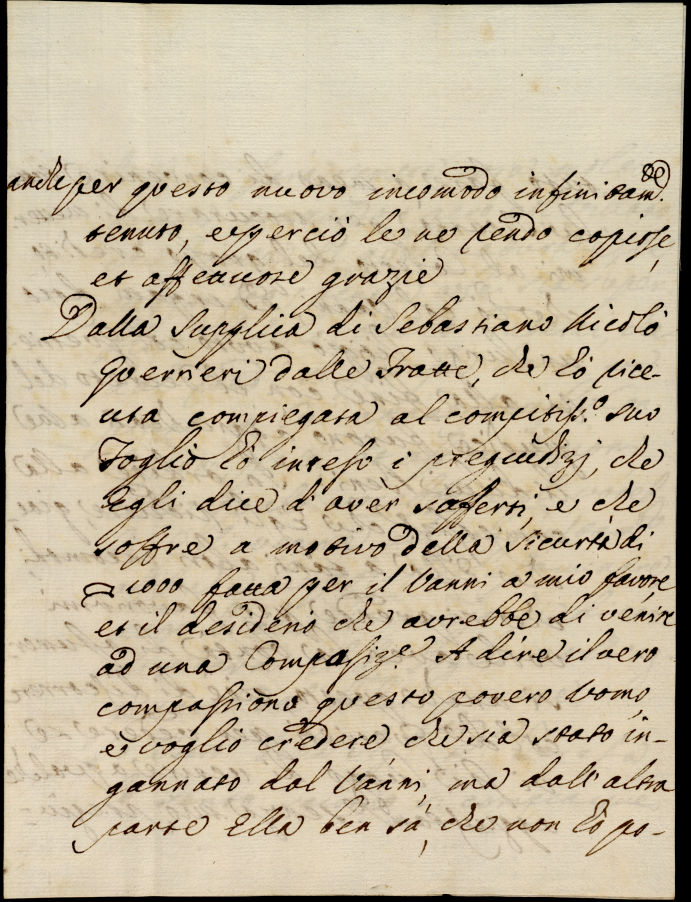 anche per questo nuovo incomodo infinitam.te
tenuto, e perciò le ne rendo copiose,
et affettuose grazie
Dalla Supplica di Sebastiano Nicolò
Guerrieri dalle Tratte, che hò rice-
uta compiegata al compitiss.o suo
Foglio hò inteso i pregiudizj, che
Egli dice d'aver sofferti, e che
soffre a motivo della Sicurtà di
1000 fatta per il Vanni a mio favore
et il desiderio che avrebbe di venire
ad una Composiz.e A dire il vero
compassiono questo povero Uomo,
e voglio credere che sia stato in-
gannato dal Vanni, ma dall'altra
parte Ella ben sà, che non hò po-